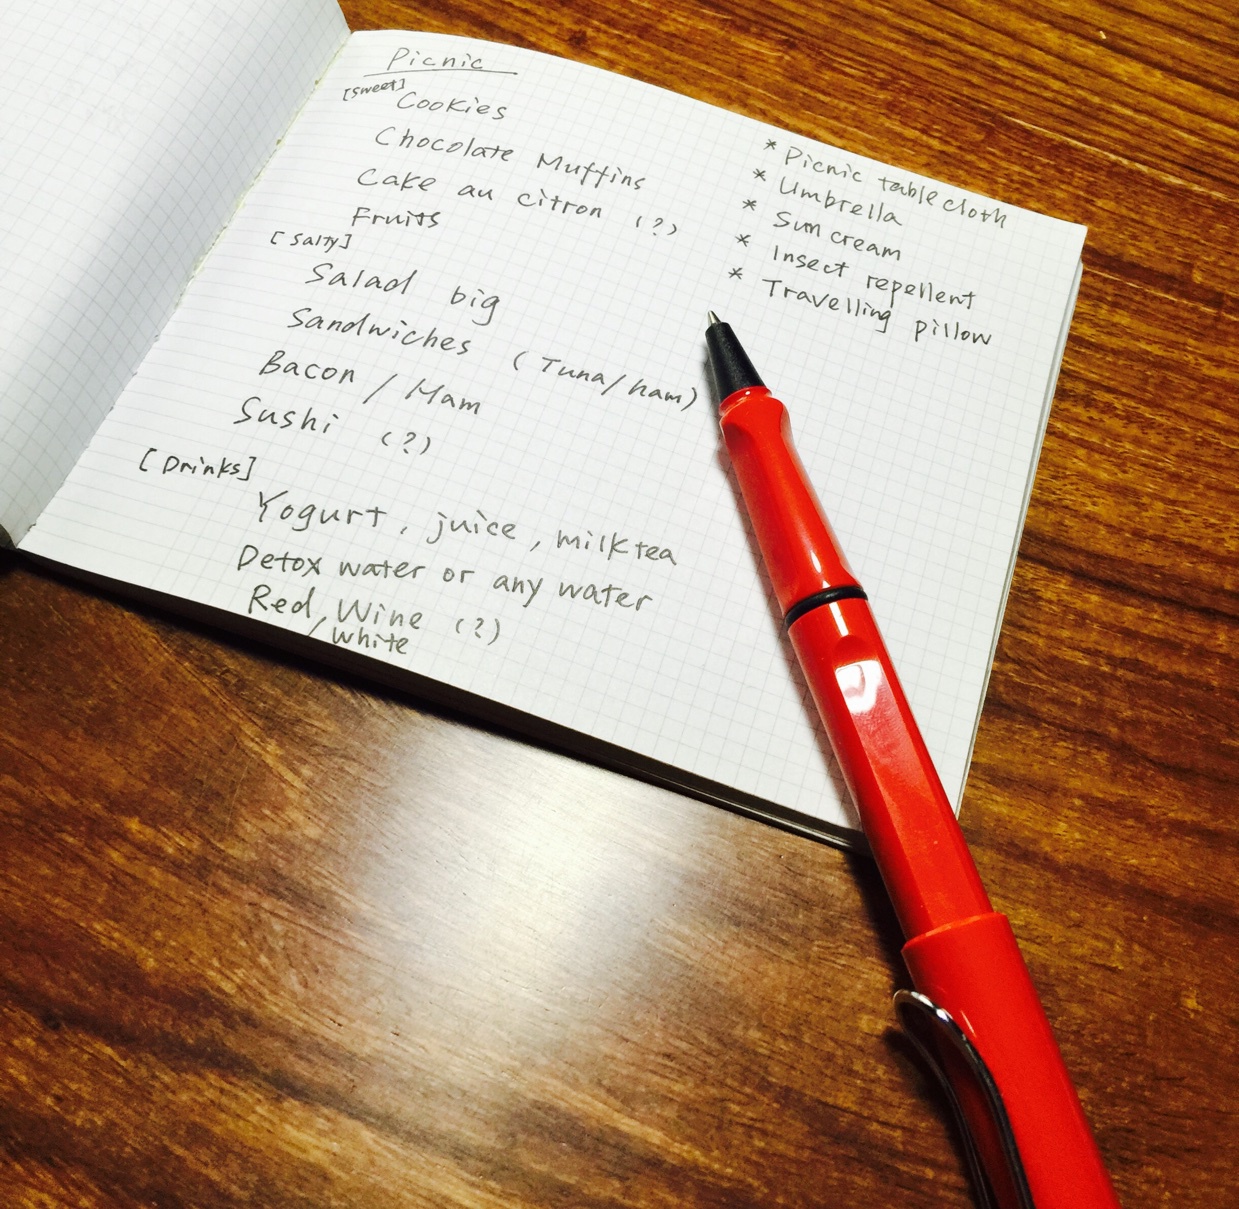 Picnic
[sweet]
Cookies
Chocolate Muffins
Cake au citron (?)
Fruits
[Salty]
Salad big
Sandwiches (Tuna/ham)
Bacon / Ham
Sushi (?)
[Drinks]
Yogurt, juice, milktea
Detox water or any water
Red Wine (?)
/white
* Picnic table cloth
* Umbrella
* Sun cream
* Insect repellent
* Travelling pillow